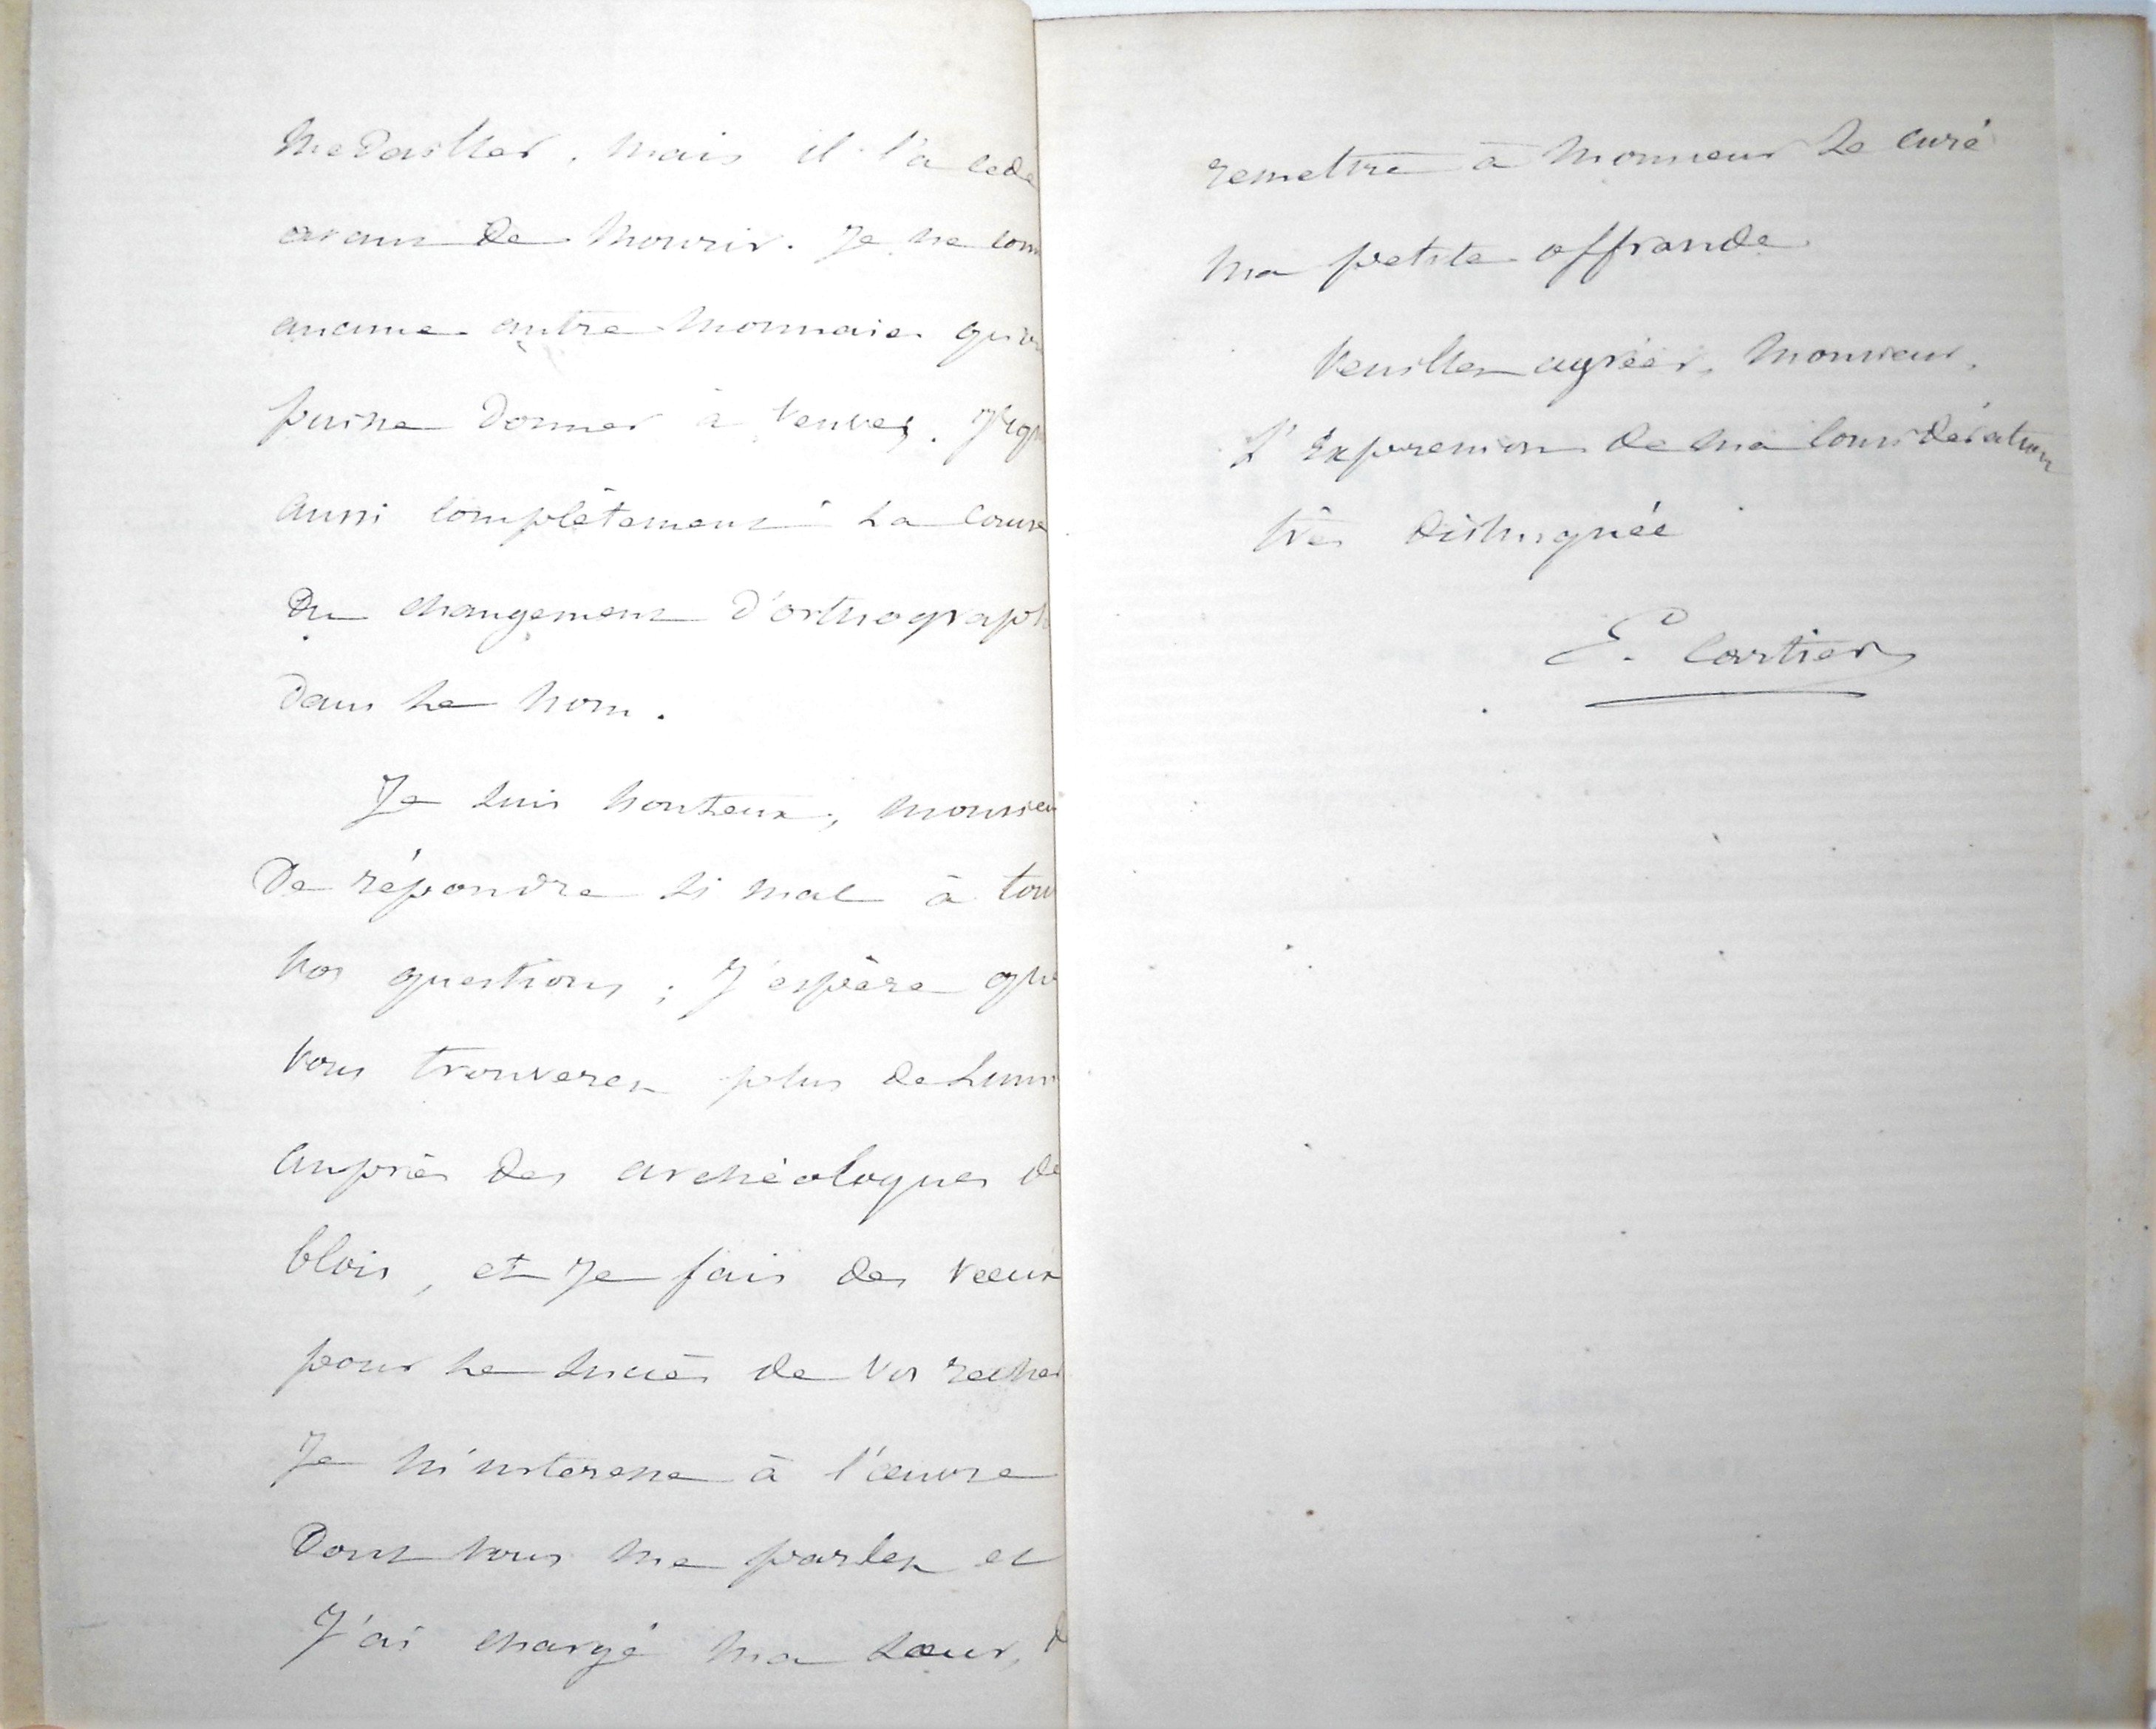 medailler, mais il l'a cede
avant de mourir. Je ne con
aucune autre monnaie qu'on
puisse donner à Veuves. J'ign
aussi complètement la cause
du changement d'orthograph
dans le nom.
Je suis honteux, monsieu
de répondre si mal à tou
vos questions ; J'espère que
vous trouverez plus de lumi
auprès des archéologues de
blois, et je fais des vœux
pour le succès de vos recher
Je m'interesse à l'œuvre
dont vous me parlez et
J'ai chargé ma sœur, d
remettre à monsieur le curé
ma petite offrande
Veuillez agréer, monsieur,
l'expression de ma considération
très distinguée
E. Cartier